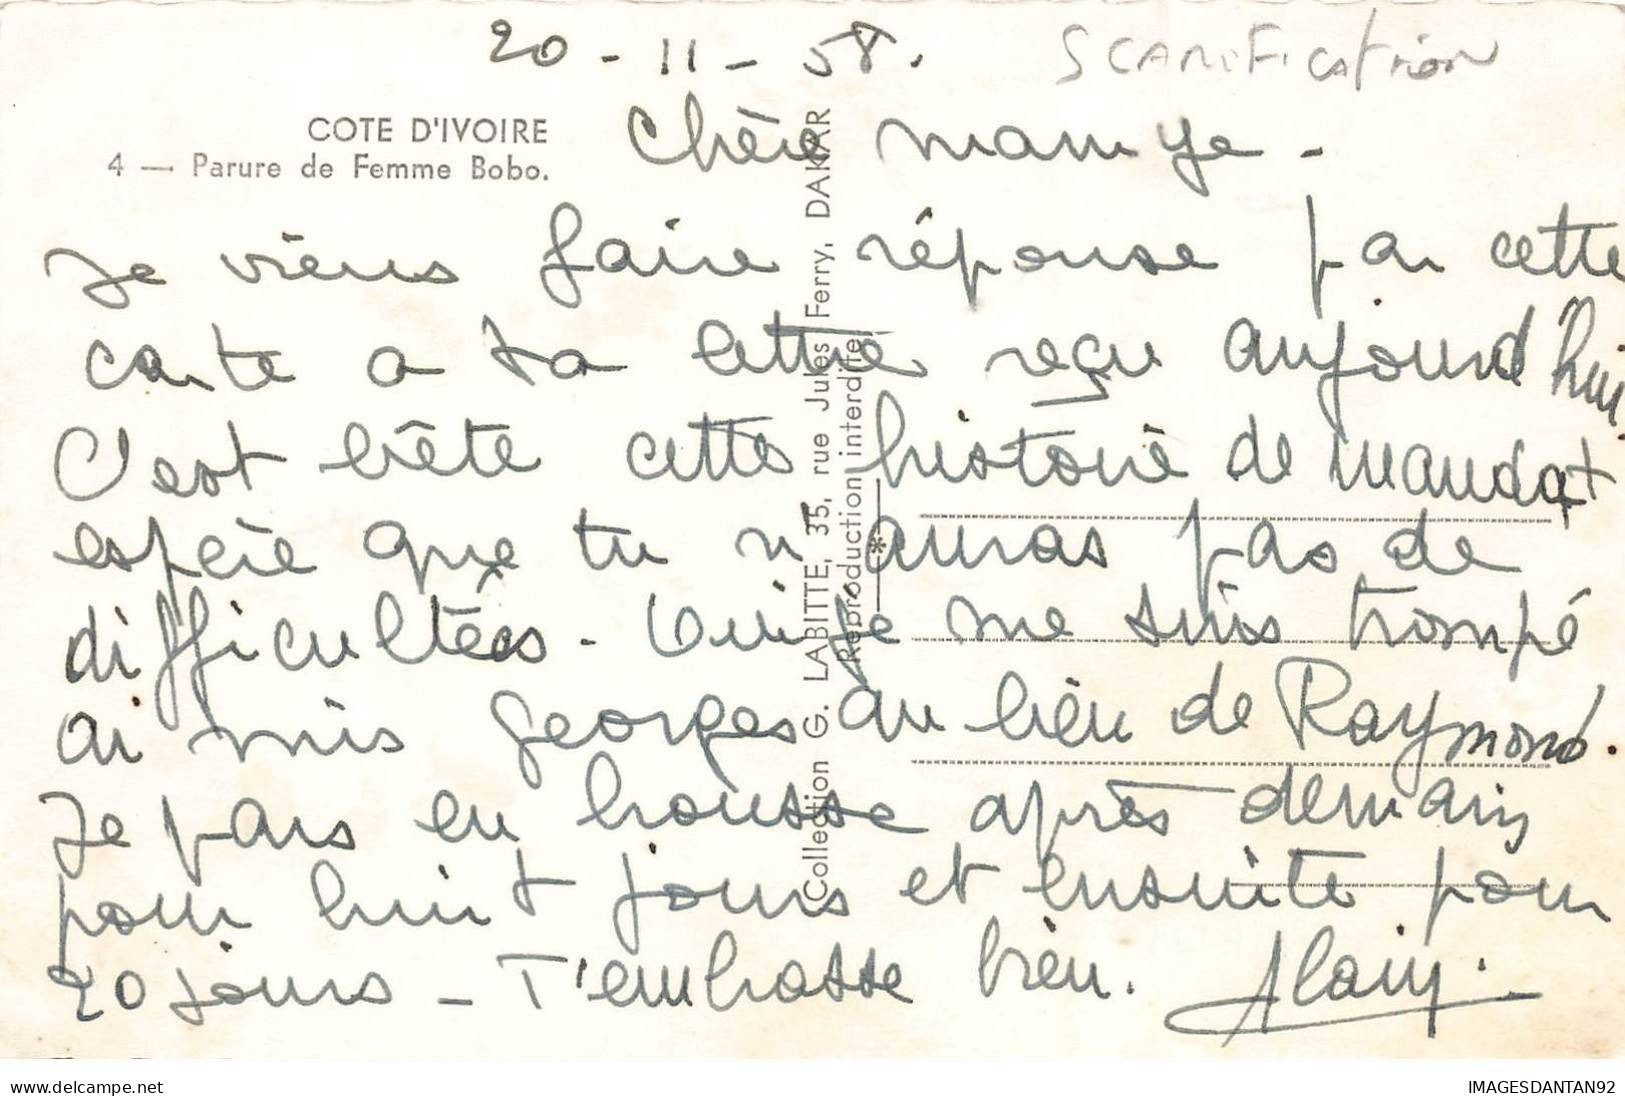 20 - 11 - 58.
SCARIFICATION
COTE D'IVOIRE
4 — Parure de Femme Bobo.
Chère mamye -
Je viens faire réponse par cette
carte a ta lettre reçu aujourd'hui
C'est bête cette histoire de mandat
espère que tu n'auras pas de
difficultées - Oui je me suis trompé
ai mis Georges au lieu de Raymond.
Je pars en brousse après demain
pour huit jours et ensuite pour
20 jours - T'embrasse bien. Alain.
Collection G. LABITTE, 35, rue Jules Ferry, DAKAR
Reproduction interdite
www.delcampe.net
IMAGESDANTAN92